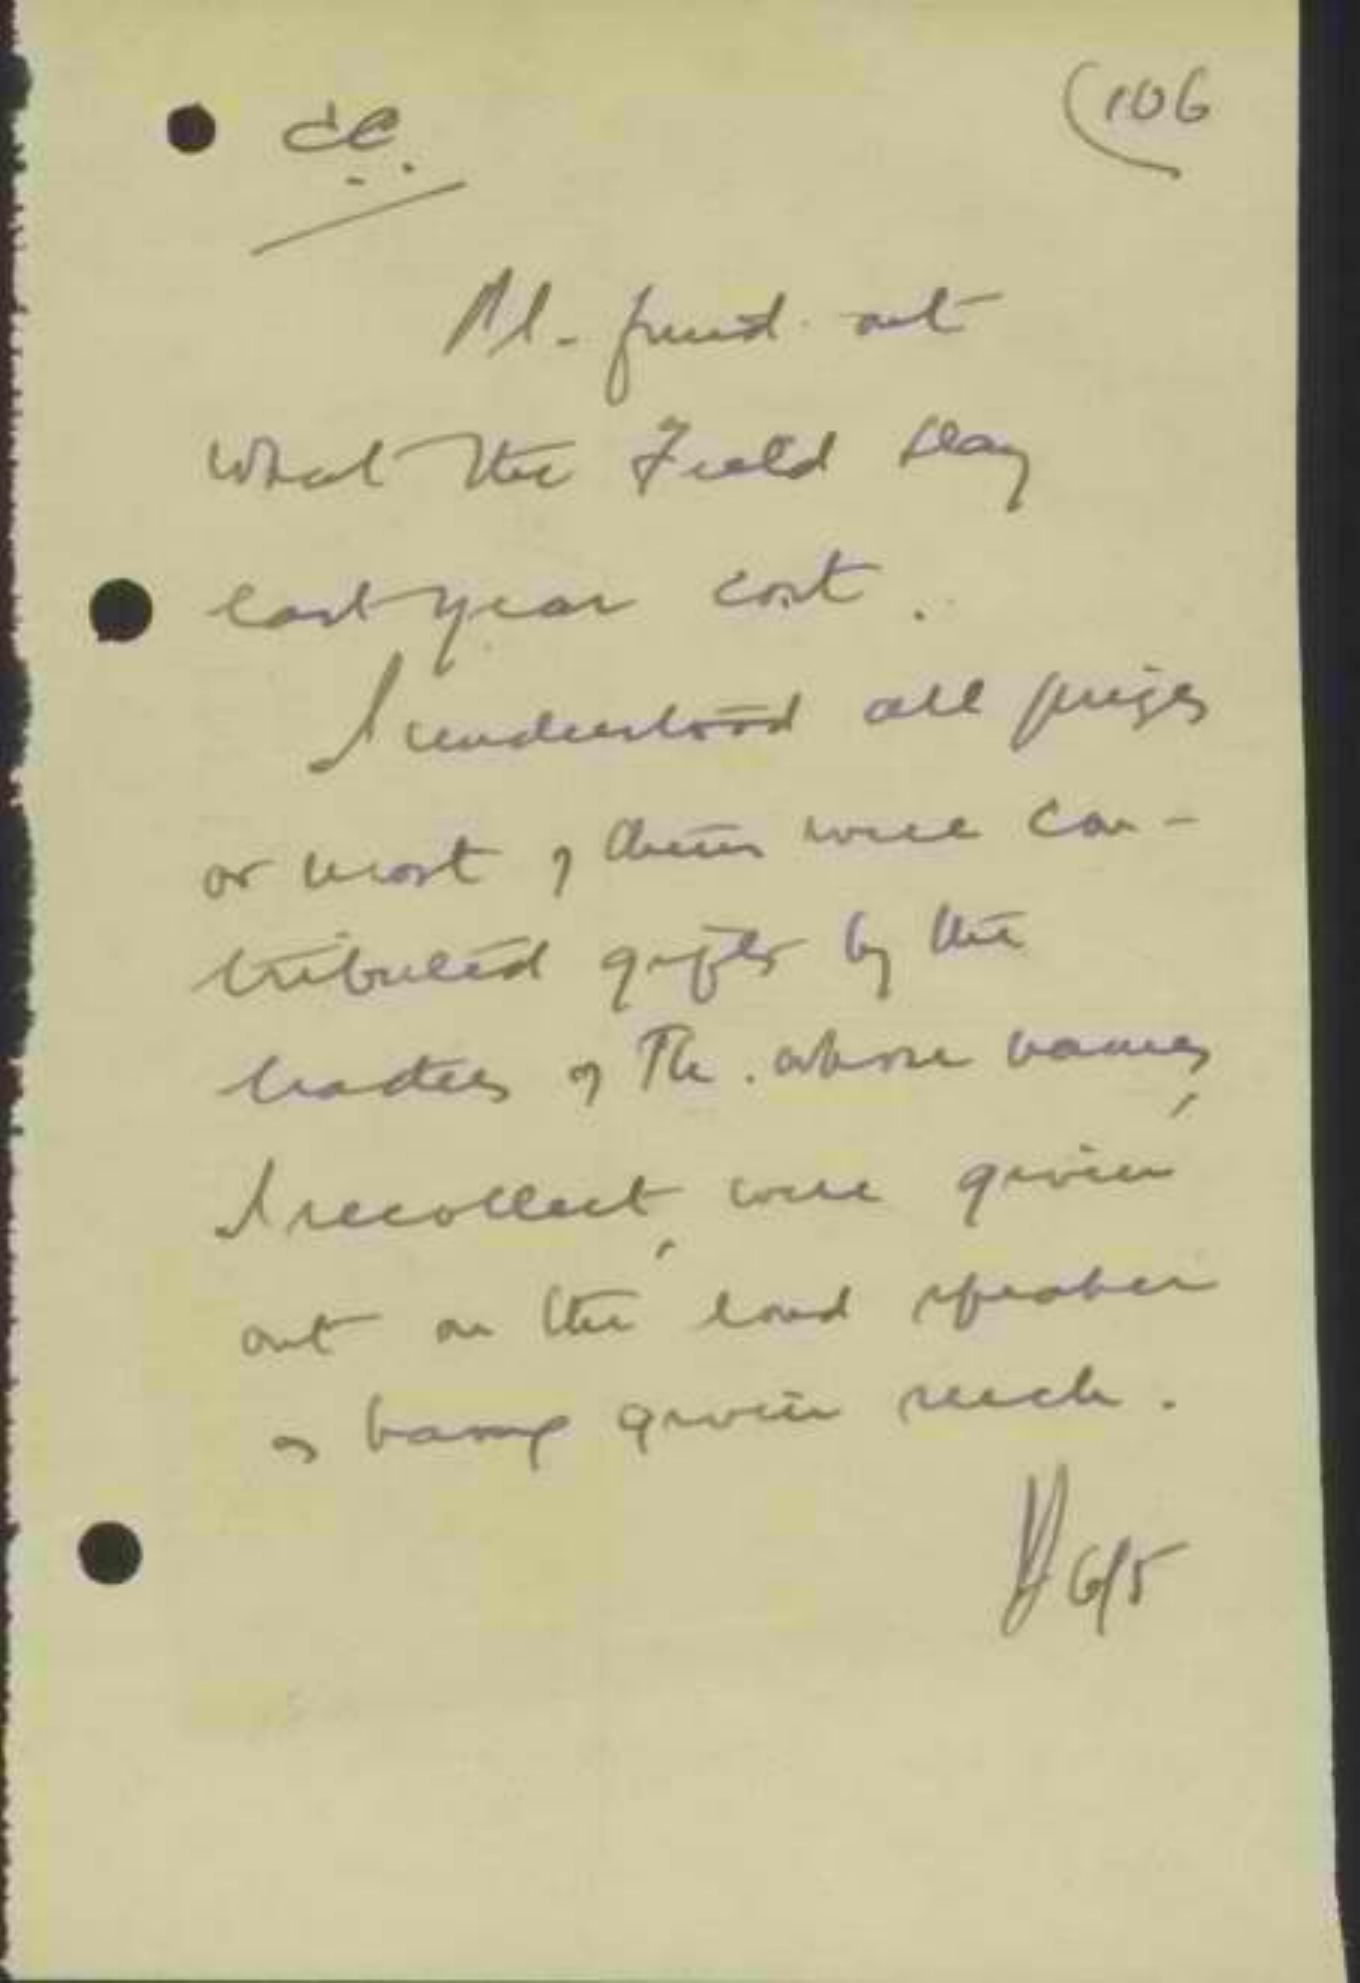 106
CC.
Pl. find out
what the Field Day
last year cost.
I understood all prizes
or most of them were con-
tributed gifts by the
traders of Th. whose names,
I recollect, were given
out on the loud speaker
as having given such.
6/5